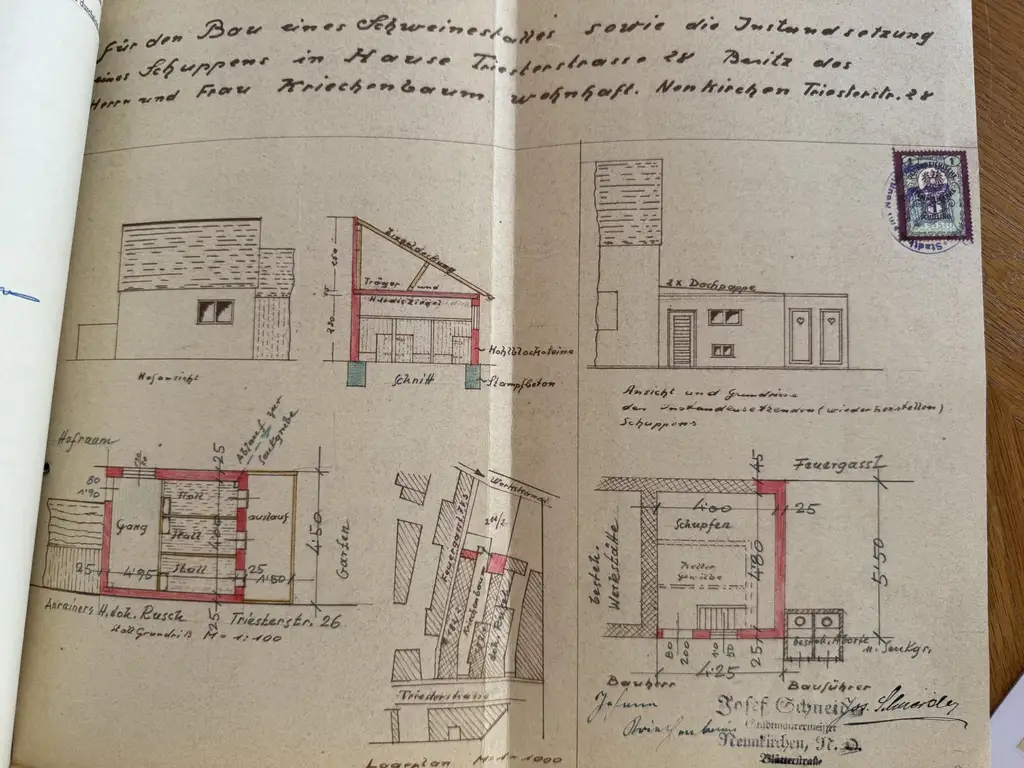 für den Bau eines Schweinestalles sowie die Instandsetzung
eines Schuppens in Hause Triesterstrasse 28 Besitz des
Herrn und Frau Kriechenbaum wohnhaft. Neunkirchen Triesterstr. 28
Ziegeldeckung
Träger und
Hourdis Ziegel
Hohlblocksteine
Stampfbeton
Hofansicht
Schnitt
2x Dachpappe
Ansicht und Grundriss
des Instandzusetzenden (wiederherstellen)
Schuppens
Hofraum
Ablauf zur
Senkgrube
25
80
1·90
Gang
Stall
Stall
Stall
auslauf
4·50
Garten
25
4·95
25
1·50
25
Anrainers H. Joh. Rusch
Triesterstr. 26
Stall Grundriß M= 1:100
Werkskanal
Feuergasse
Kriechenbaum
Triesterstrasse
Lageplan M= 1:1000
45
Feuergassl
4·00
25
Schupfen
besteh.
Werkstätte
Keller
gewölbe
4·80
5·50
80
200
25
4·25
besteh. Aborte
u. Senkgr.
Bauherr
Bauführer
Johann
Kriechenbaum
Josef Schneider
Stadtmaurermeister
Neunkirchen, N. Ö.
Blätterstraße
Jos. Schneider